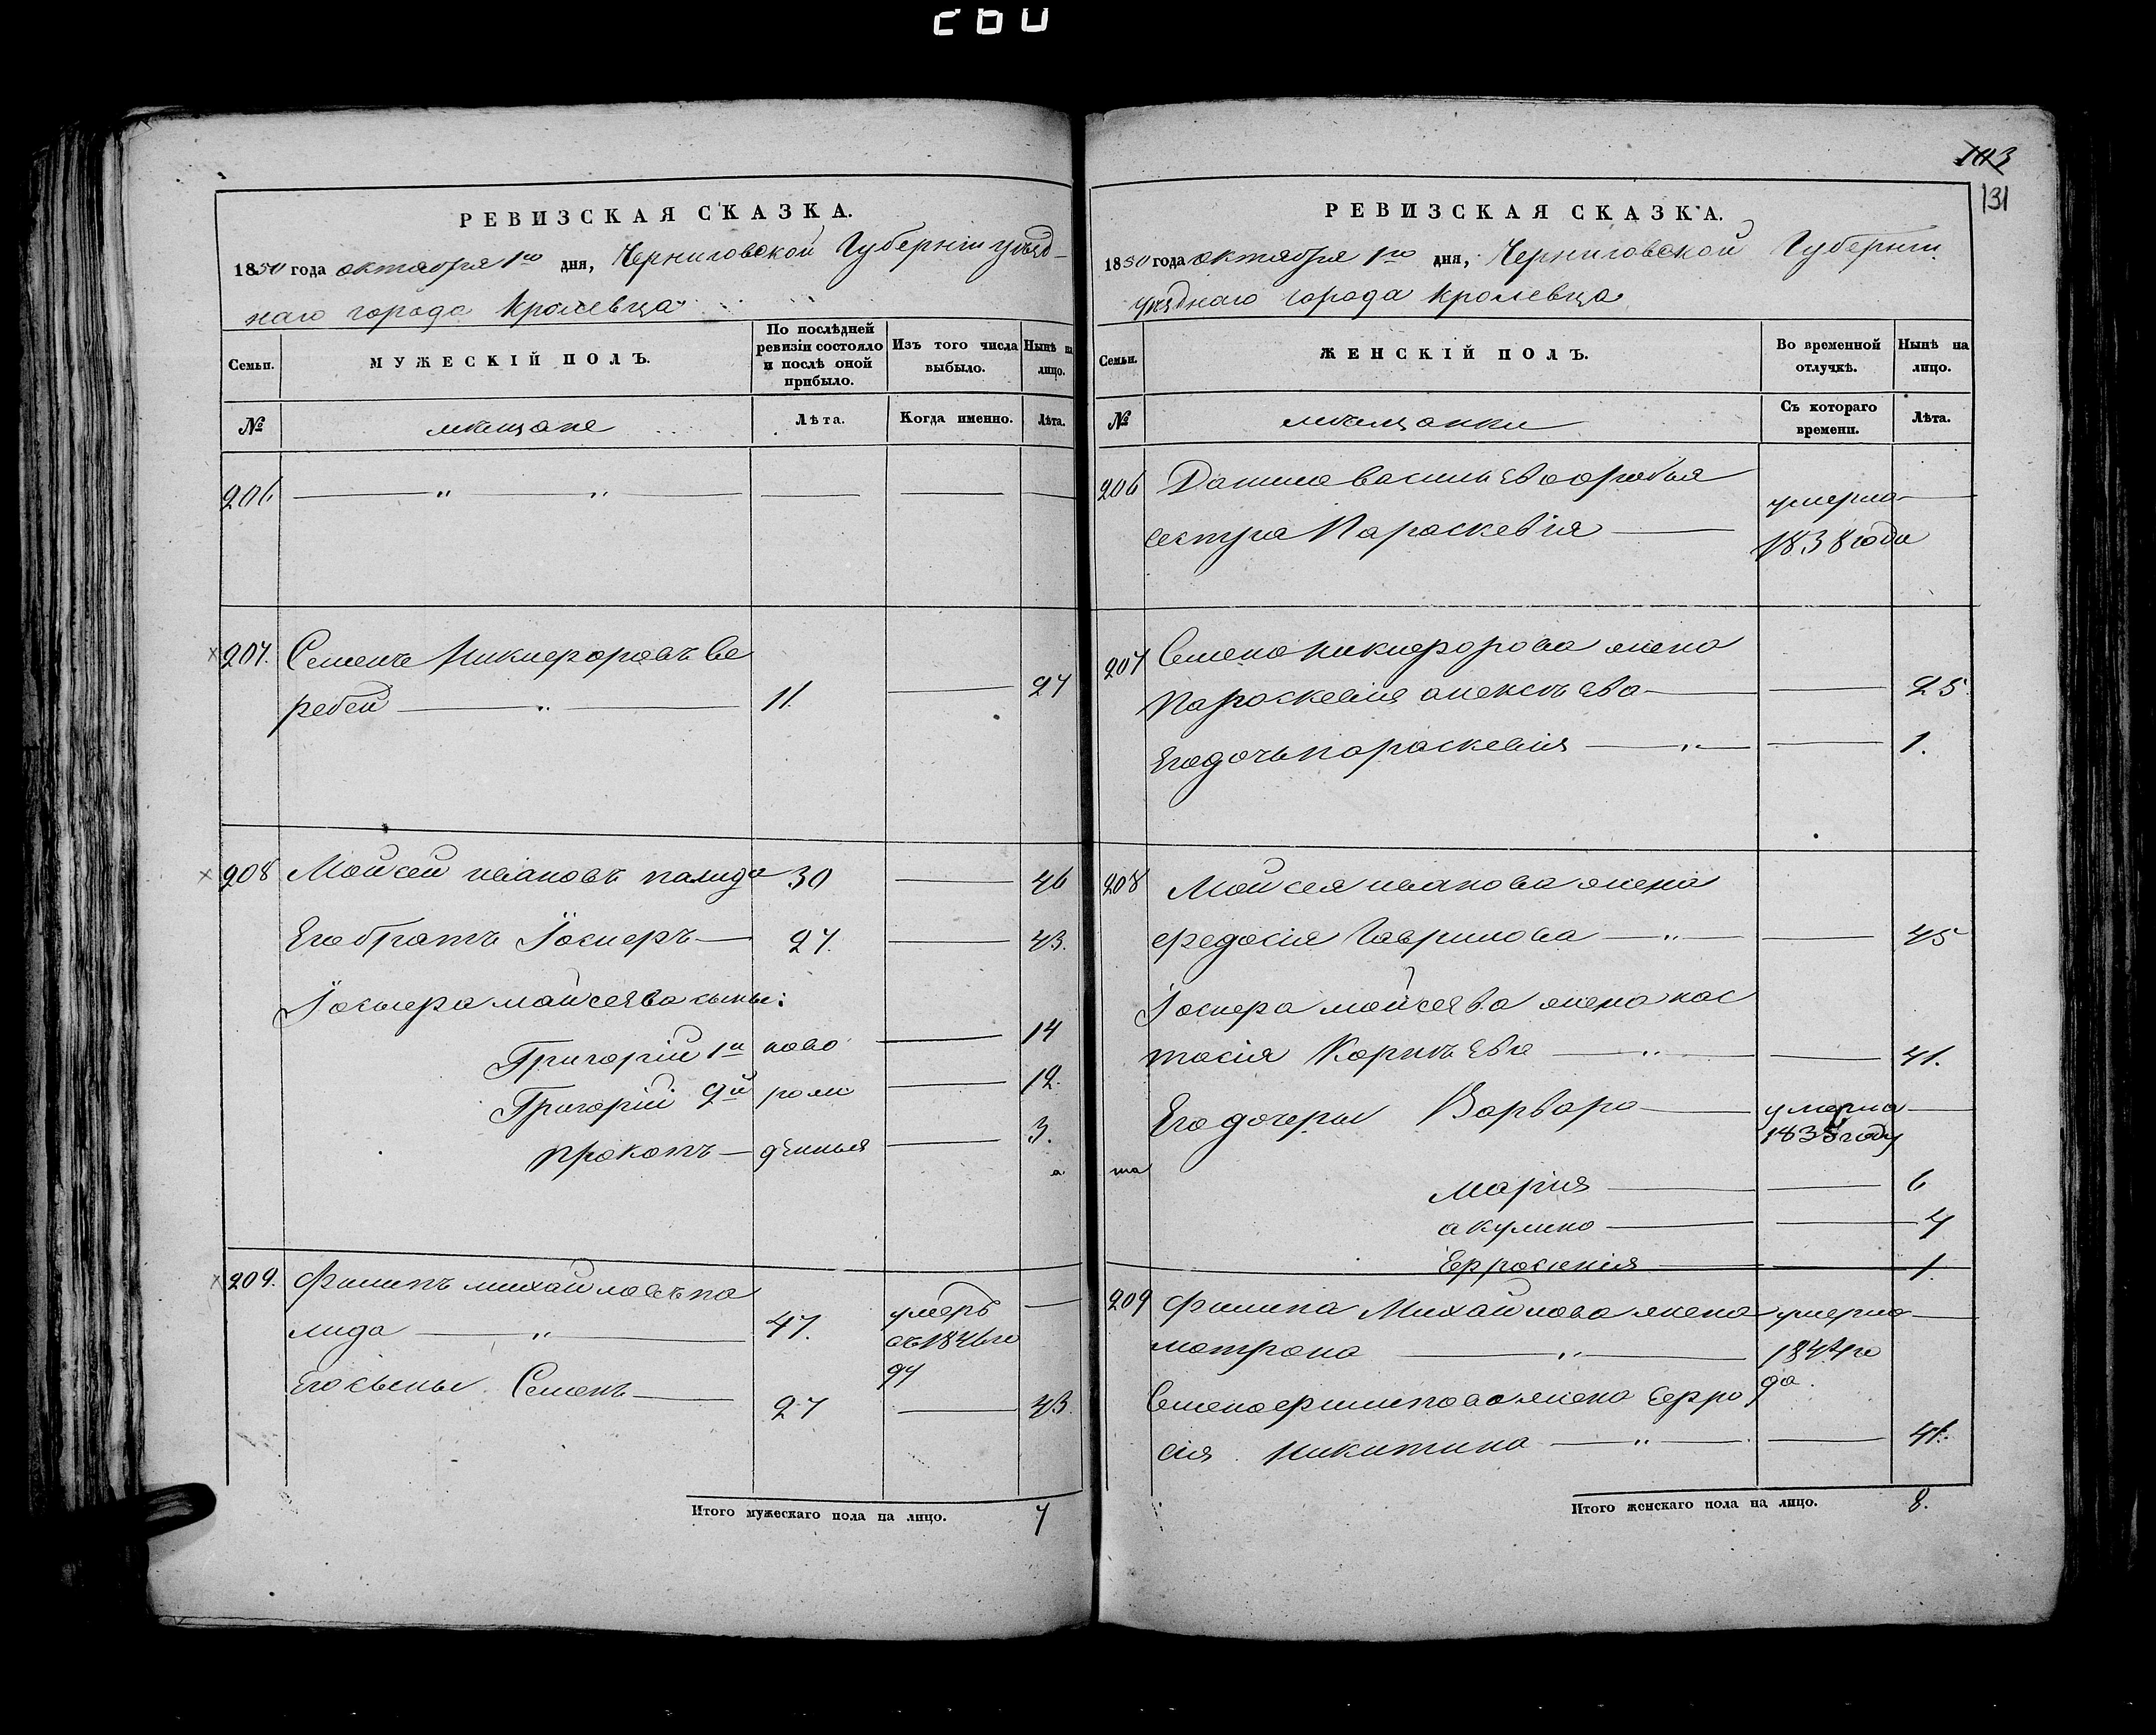 260
РЕВИЗСКАЯ СКАЗКА.
1850 года октября 1го дня, Черниговской Губернiи уезд-
наго города Кролевца
Семьи.
МУЖЕСКІЙ ПОЛЪ.
По послѣдней ревизіи состояло и послѣ оной прибыло.
Изъ того числа выбыло.
Нынѣ на лицо.
№
мѣщане
Лѣта.
Когда именно.
Лѣта.
206
207. Семенъ Никифоровъ Ве
ребей 11. 27
208 Мойсей Ивановъ палида 30 46
Его братъ 27. 43.
мойсеева сыны:
Григорій 1й ново 14
Григорій 2й рож 12.
Прокопъ денныя 3.
209. Филипъ Михайловъ па
лида 47. умеръ
въ 1846 го
ду
Его сыны Семенъ 27 43.
Итого мужескаго пола на лицо. 7
103
131
РЕВИЗСКАЯ СКАЗКА.
1850 года октября 1го дня, Черниговской Губернiи
уезднаго города Кролевца
Семьи.
ЖЕНСКІЙ ПОЛЪ.
Во временной отлучкѣ.
Нынѣ на лицо.
№
мѣщанки
Съ котораго времени.
Лѣта.
206 васильева
сестра Параскевія умерла
1838 года
207 Семена Никифорова жена
Параскевія алексѣева 25
Его дочь параскевія 1.
208 Мойсея иванова жена
федосія Гаврилова 45
мойсеева жена нас
тасія Корнѣева 41.
Его дочеры Варвара умерла
1835 году
Марія 6
акулина 4
Ефросинія 1.
209 Филипа Михайлова жена умерла
матрона 1844 го
да
Семена филипова жена Ефро
сія Никитина 41.
Итого женскаго пола на лицо. 8.